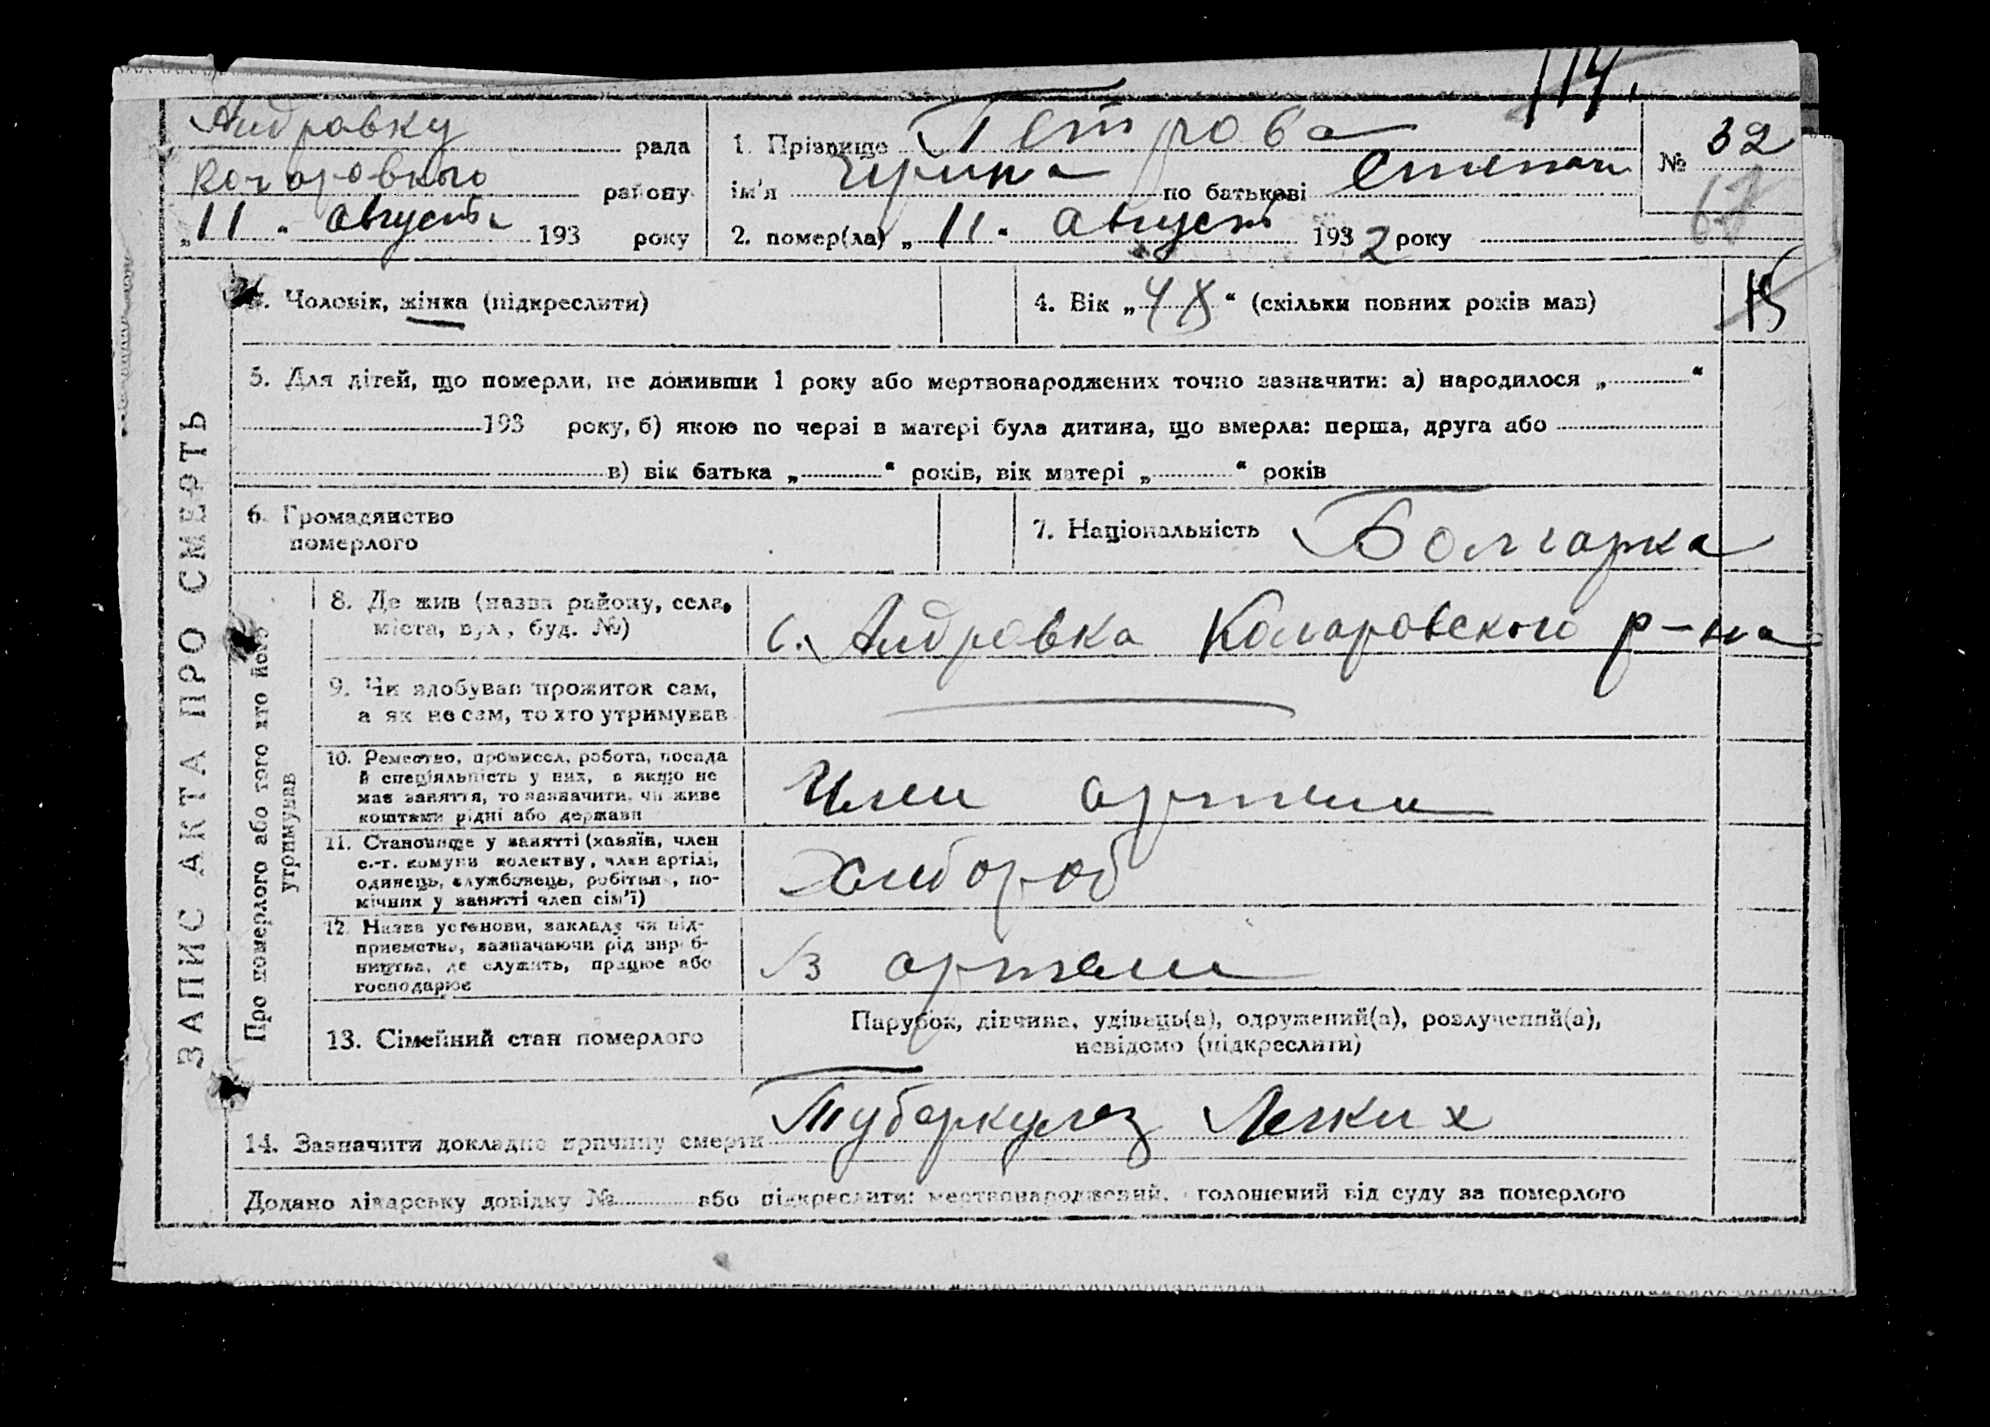 114.
Андровку рада
Коларовкого району
„11“ августа 193 року
1. Прізвище Петрова
ім'я Ирина по батькові Степан
2. помер(ла) „11“ август 1932 року
№ 32
67
3. Чоловік, жінка (підкреслити)
4. Вік „48“ (скільки повних років мав)
15
5. Для дітей, що померли, не доживши 1 року або мертвонароджених точно зазначити: а) народилося „ “
193 року, б) якою по черзі в матері була дитина, що вмерла: перша, друга або
в) вік батька „ “ років, вік матері „ “ років
6. Громадянство
померлого
7. Національність Болгарка
ЗАПИС АКТА ПРО СМЕРТЬ
Про померлого або того хто його
утримував
8. Де жив (назва району, села,
міста, вул., буд. №)
с. Андровка Коларовского р-на
9. Чи здобував прожиток сам,
а як не сам, то хто утримував
10. Ремество, промисел, робота, посада
й спеціяльність у них, а якщо не
має заняття, то зазначити, чи живе
коштами рідні або держави
Член артели
11. Становище у занятті (хазяїн, член
с.-г. комуни колективу, член артілі,
одинець, службовець, робітник, по-
мічник у занятті член сім'ї)
Хлибороб
12. Назва установи, закладу чи під-
приємства, зазначаючи рід вироб-
ництва, де служить, працює або
господарює
В артели
13. Сімейний стан померлого
Парубок, дівчина, удівець(а), одружений(а), розлучений(а),
невідомо (підкреслити)
14. Зазначити докладно причину смерти Туберкулез Легких
Додано лікарську довідку № або підкреслити: мертвонароджений, оголошений від суду за померлого